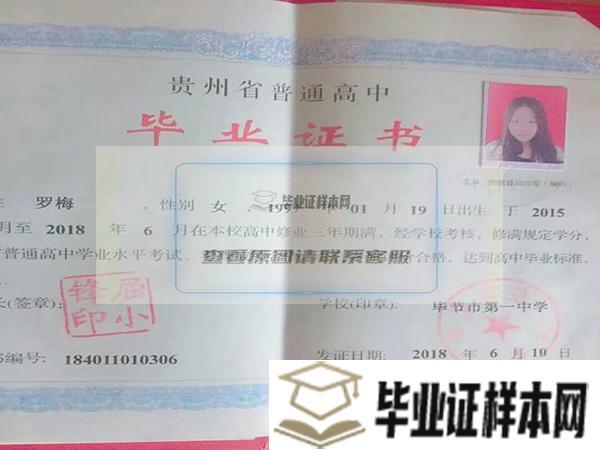 贵州省普通高中
毕业证书
罗梅 ，性别 女 ，199 年 01 月 19 日出生，于 2015
月至 2018 年 6 月在本校高中修业三年期满，经学校考核，修满规定学分，
普通高中学业水平考试、 合格，达到高中毕业标准，
毕业证样本网
查看原图请联系客服
(签章)： 学校(印章)： 毕节市第一中学
屈小锋印
编号： 184011010306 发证日期： 2018 年 6 月 10 日
毕业证样本网